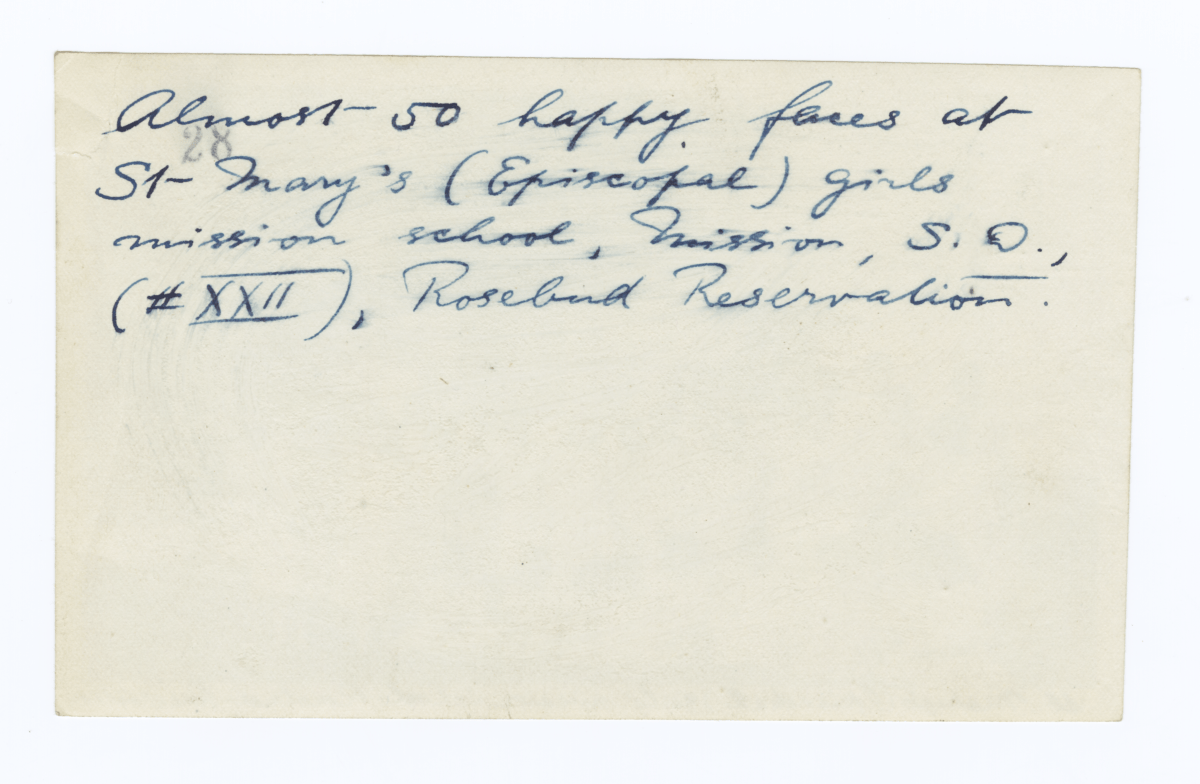 Almost 50 happy faces at
28
St Mary's (Episcopal) girls
mission school, Mission, S.D.,
(# XXII), Rosebud Reservation.